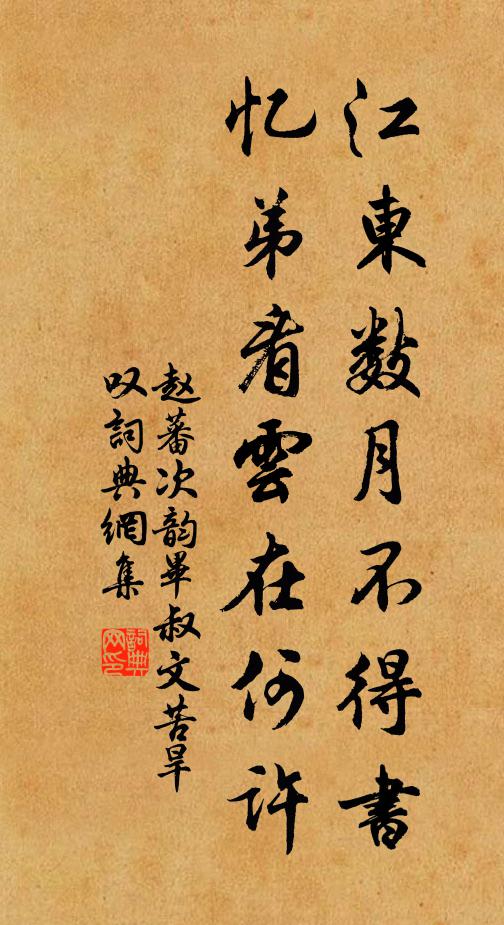 江東数月不得書
忆弟看雲在何許
赵蕃次韵畢叔文苦旱
叹詞典網集
詞典
网印